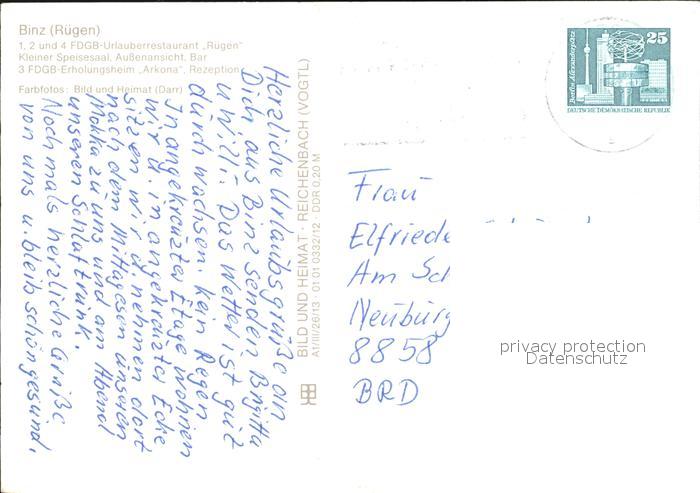 Binz (Rügen)
1, 2 und 4 FDGB-Urlauberrestaurant „Rügen"
Kleiner Speisesaal, Außenansicht, Bar
3 FDGB-Erholungsheim „Arkona", Rezeption
Farbfotos: Bild und Heimat (Darr)
Herzliche Urlaubsgrüße an
Dich aus Binz senden Brgitta
u. Willi. Das Wetter ist gut
durchwachsen. kein Regen
In angekreuzter Etage wohnen
wir d. in angekreuzter Ecke
sitzen wir d. nehmen dort
nach dem Mittagessen unseren
Mokka zu uns und am Abend
unseren Schlaftrunk.
Nochmals herzliche Grüße
von uns u. bleib schön gesund.
BILD UND HEIMAT · REICHENBACH (VOGTL)
A1/III/26/13 · 01 01 0332/12 · DDR 0,20 M
25
Berlin, Alexanderplatz
DEUTSCHE DEMOKRATISCHE REPUBLIK
Frau
Elfriede
Am Sch
Neuburg
8858
BRD
privacy protection
Datenschutz